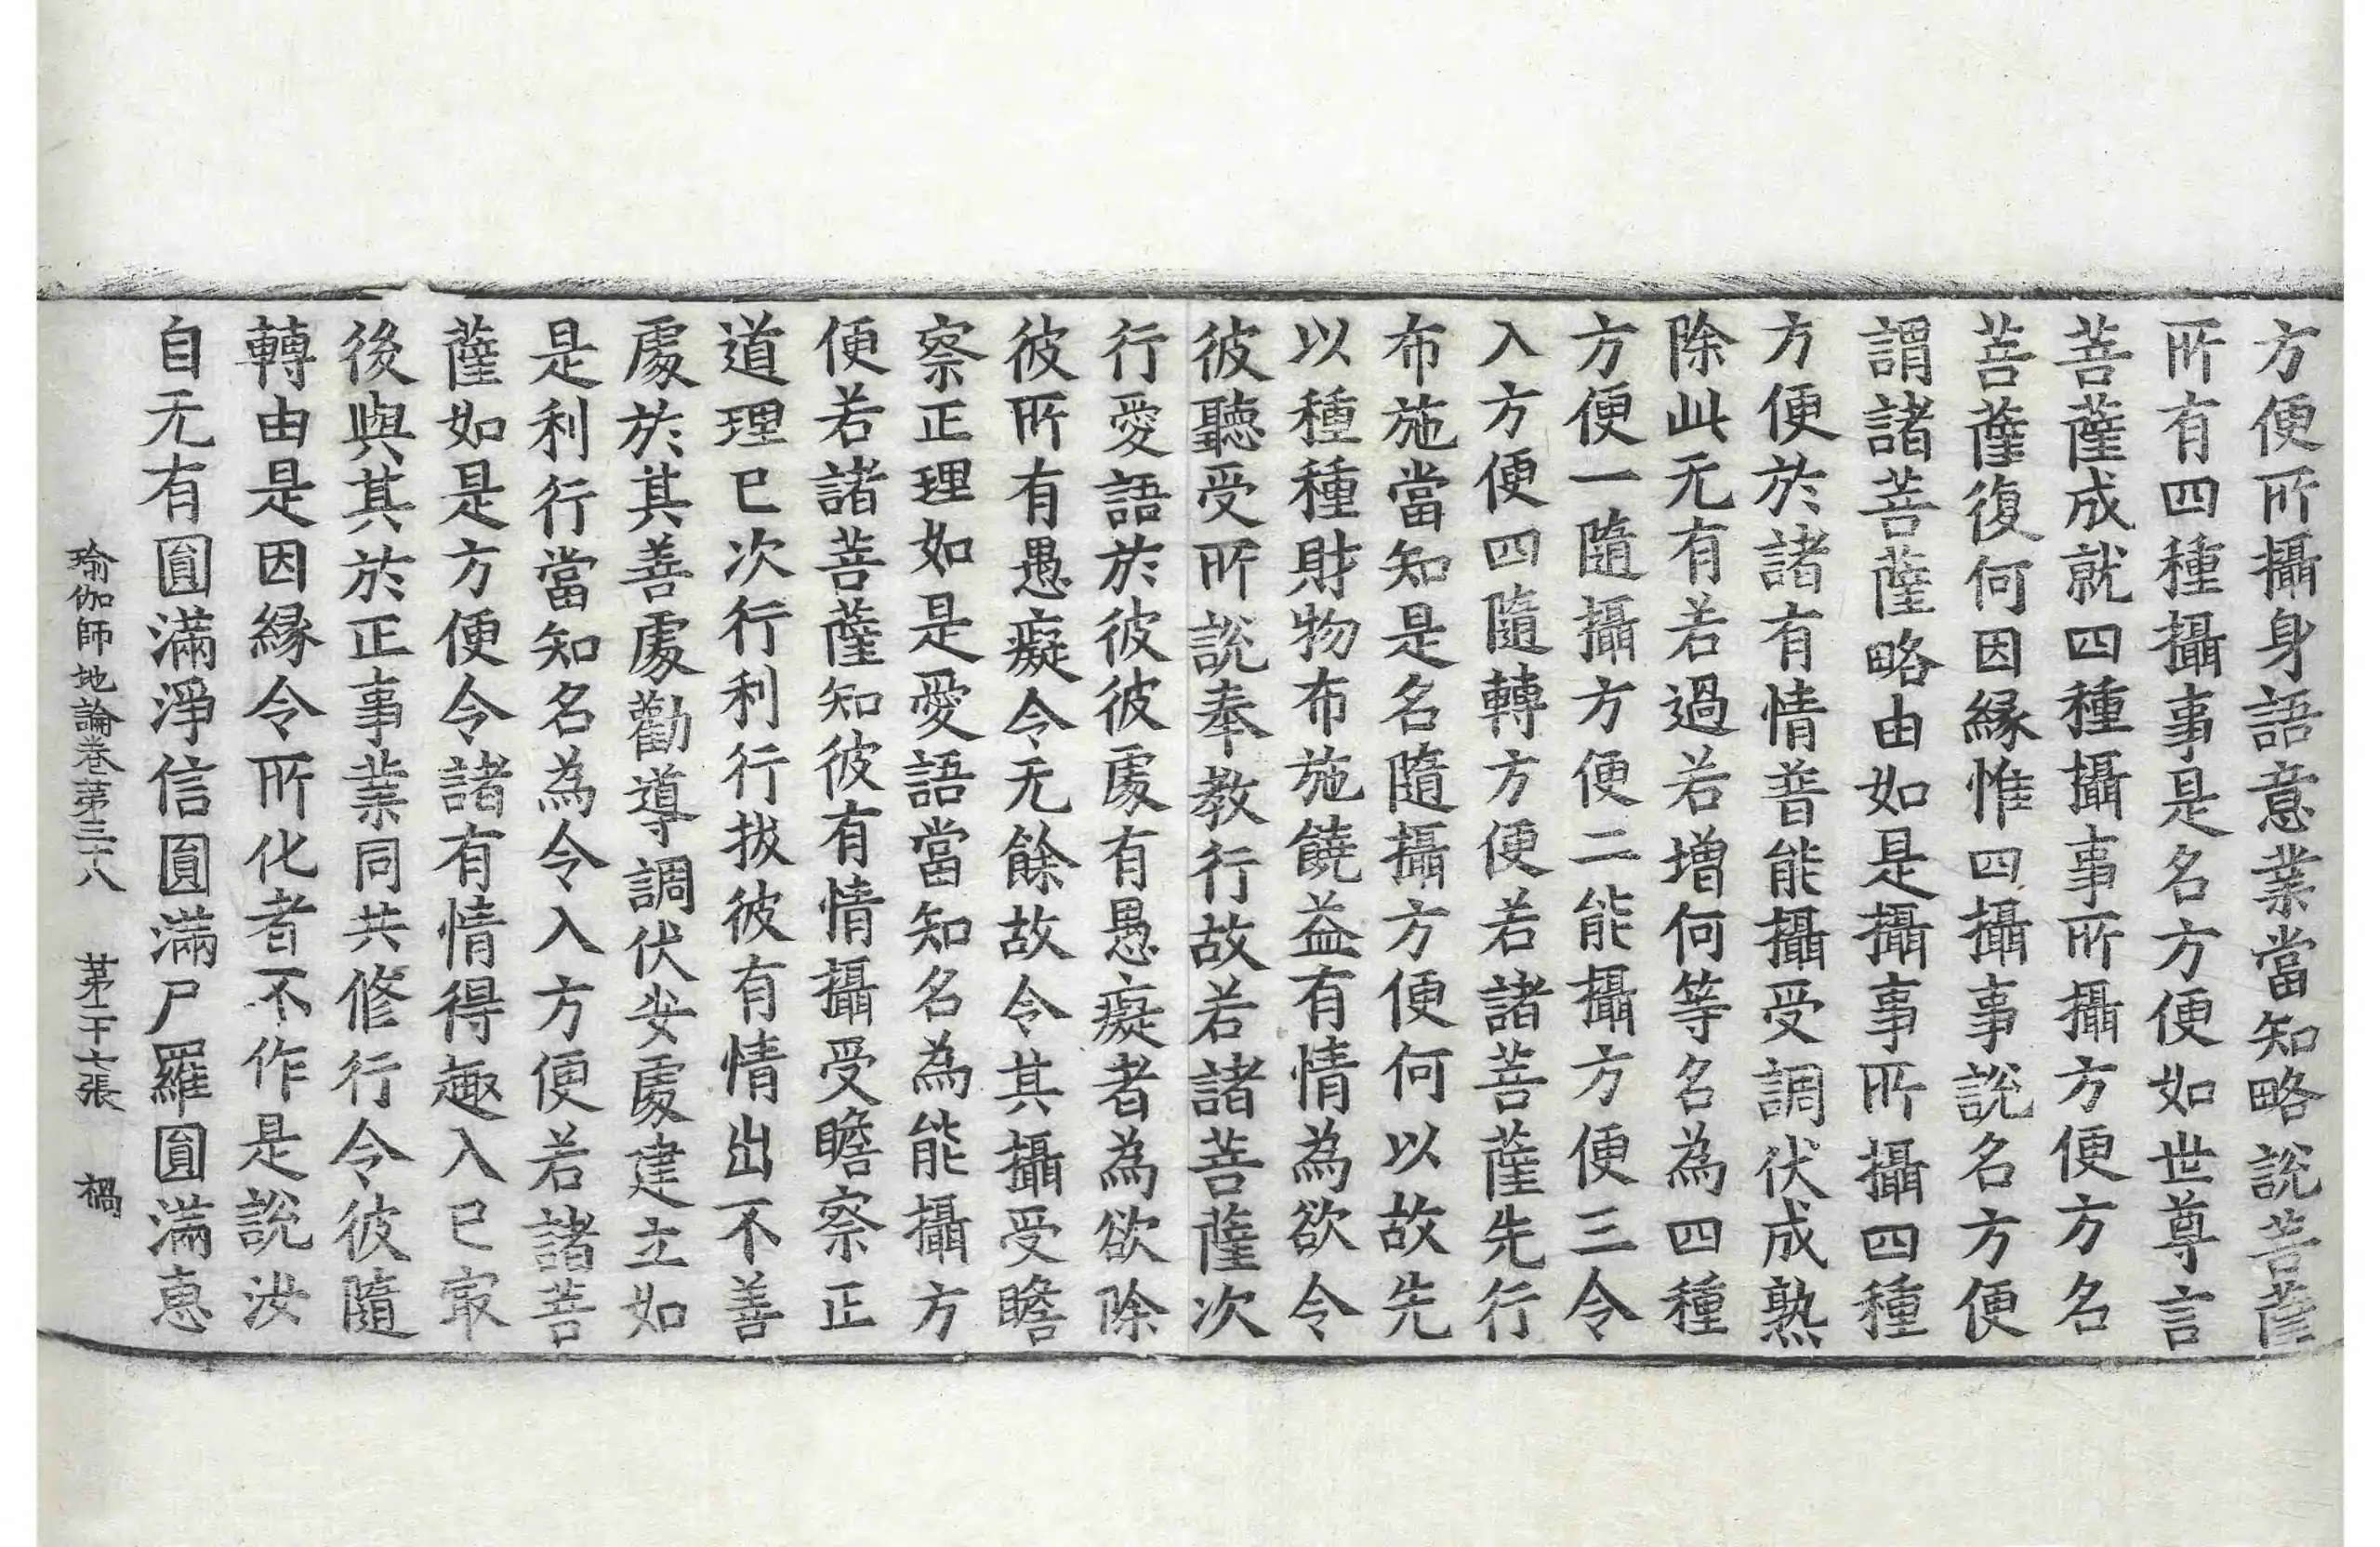 方便所攝身語意業當知略說菩薩
所有四種攝事是名方便如世尊言
菩薩成就四種攝事所攝方便方名
菩薩復何因緣惟四攝事說名方便
謂諸菩薩略由如是攝事所攝四種
方便於諸有情普能攝受調伏成熟
除此无有若過若增何等名為四種
方便一隨攝方便二能攝方便三令
入方便四隨轉方便若諸菩薩先行
布施當知是名隨攝方便何以故先
以種種財物布施饒益有情為欲令
彼聽受所說奉教行故若諸菩薩次
行愛語於彼彼處有愚癡者為欲除
彼所有愚癡令无餘故令其攝受瞻
察正理如是愛語當知名為能攝方
便若諸菩薩知彼有情攝受瞻察正
道理已次行利行拔彼有情出不善
處於其善處勸導調伏安處建立如
是利行當知名為令入方便若諸菩
薩如是方便令諸有情得趣入已冣
後與其於正事業同共修行令彼隨
轉由是因緣令所化者不作是說汝
自无有圓滿淨信圓滿尸羅圓滿惠
瑜伽師地論卷苐三十八 苐二十七張 禍